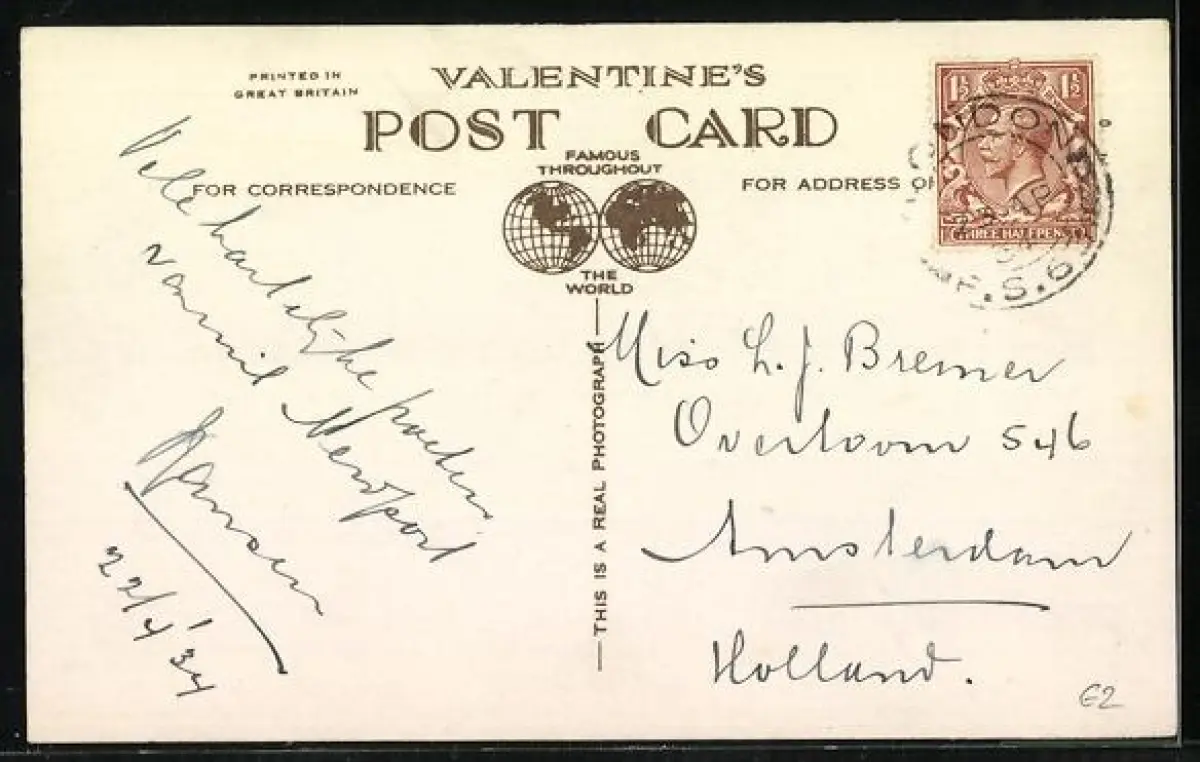 PRINTED IN
GREAT BRITAIN
VALENTINE'S
POST CARD
FAMOUS
THROUGHOUT
THE
WORLD
FOR CORRESPONDENCE
FOR ADDRESS ON
1½ 1½
THREE HALFPENCE
LONDON
F.S.6
Vele hartelijke groeten
vanuit Newport
Jansen
22/4 '34
THIS IS A REAL PHOTOGRAPH
Miss L. J. Bremer
Overtoom 546
Amsterdam
Holland.
€2